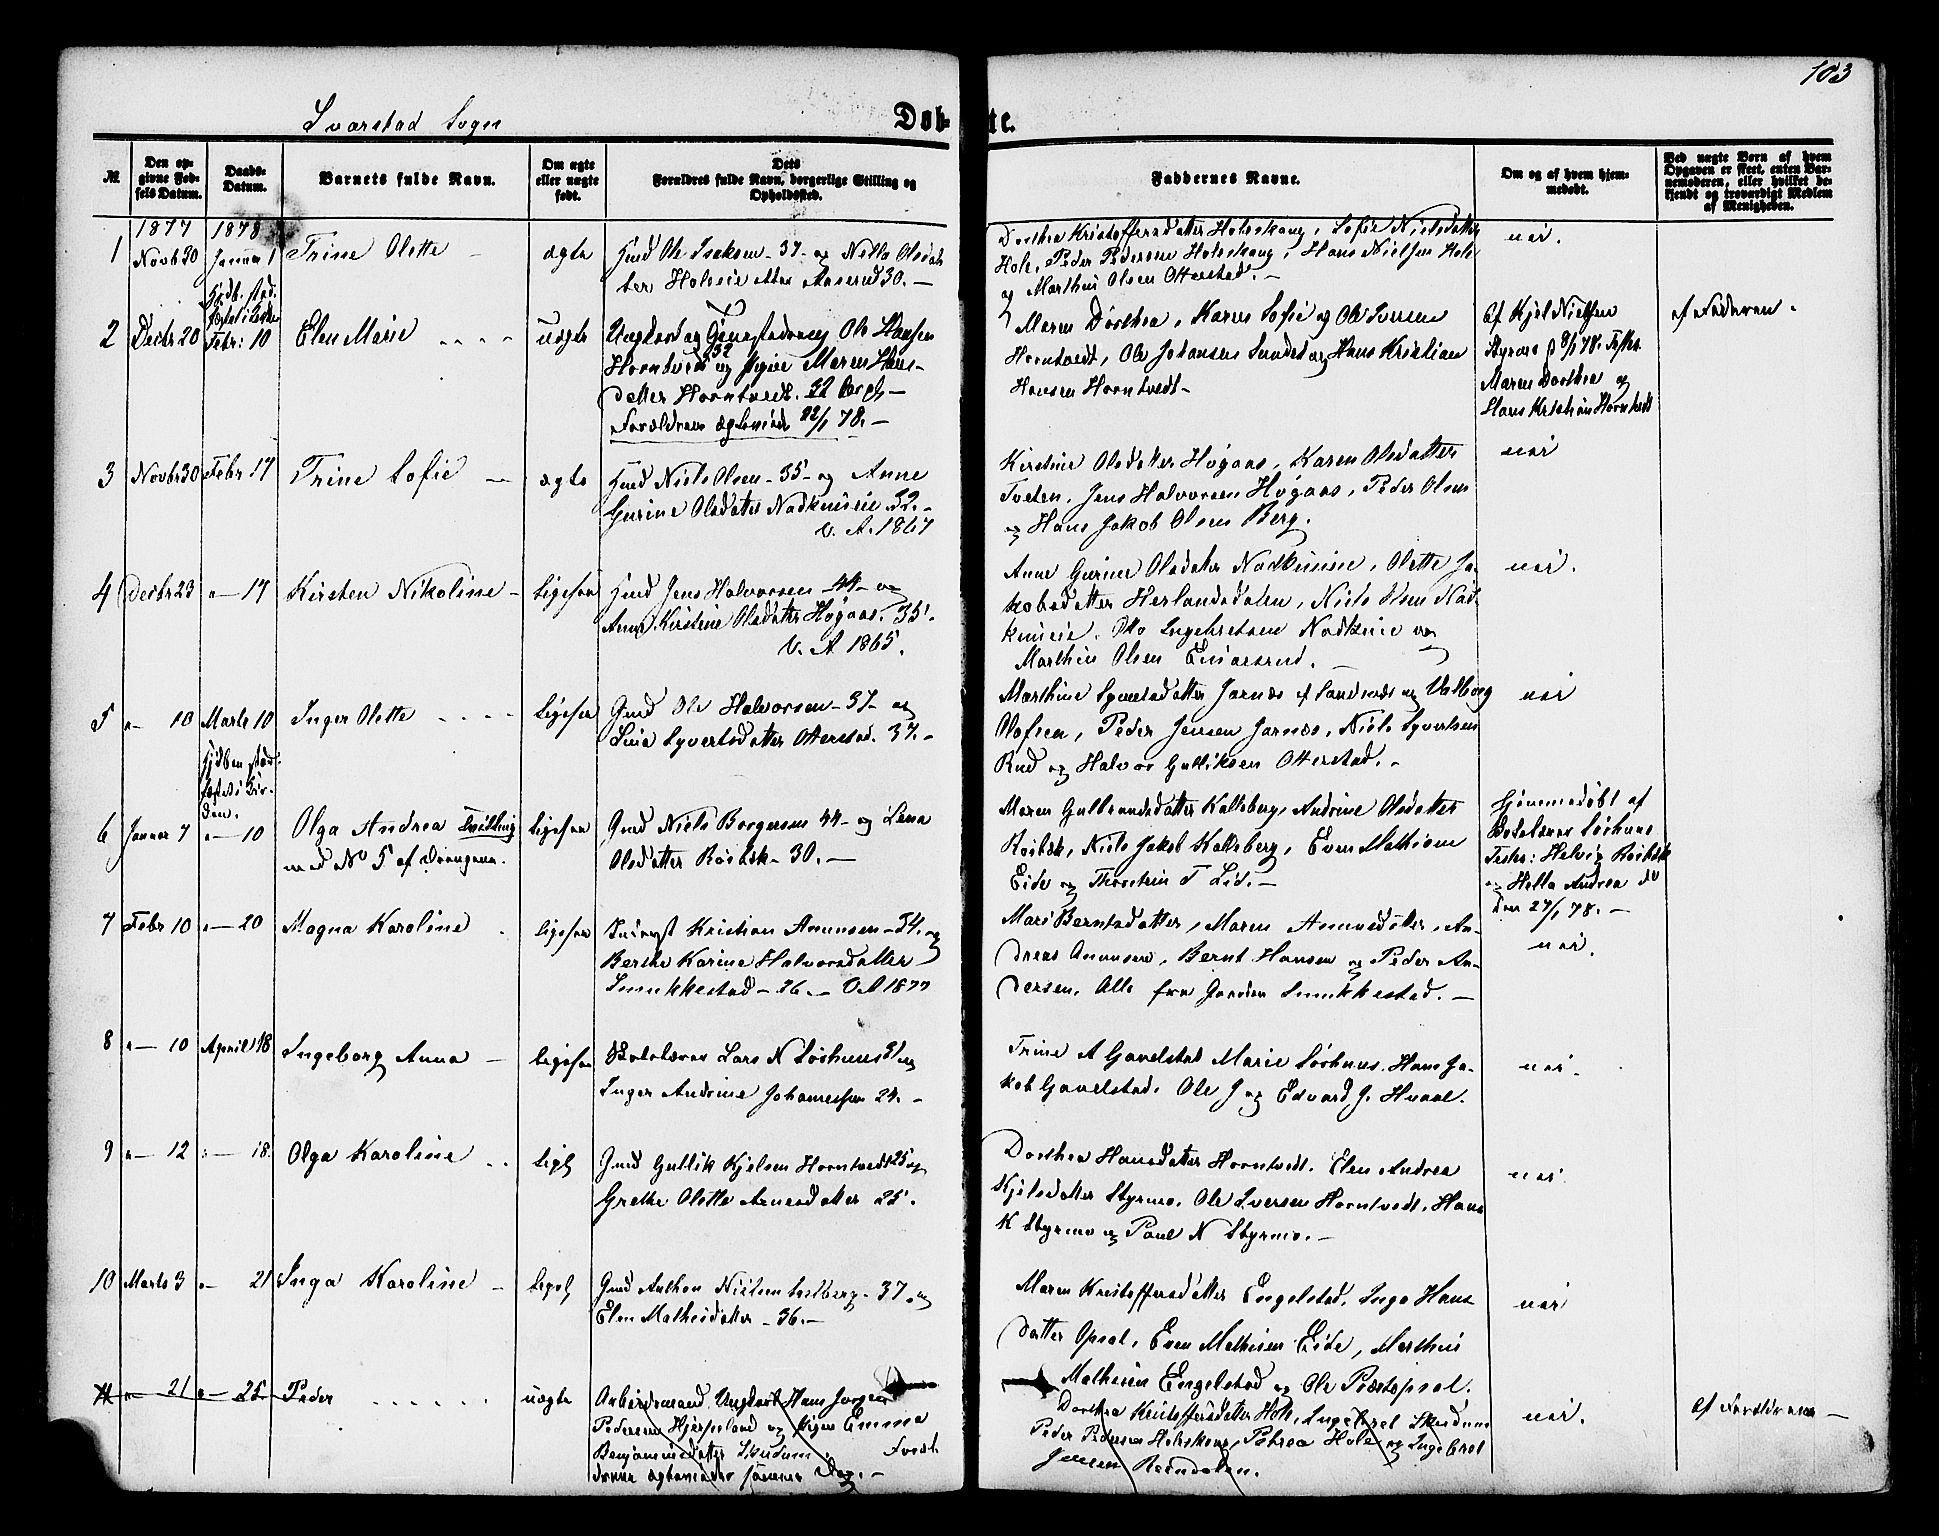 103
Svarstad Sogn
Døb- te.
№
Den op-
givne Fød-
sels Datum.
Daabs-
Datum.
Barnets fulde Navn.
Om ægte
eller uægte
født.
Dets
Forældres fulde Navn, borgerlige Stilling og
Opholdssted.
Faddernes Navne.
Om og af hvem hjem-
medøbt.
Ved uægte Børn af hvem
Opgaven er skeet, enten Bar-
nemoderen, eller hvilket be-
kjendt og troværdigt Medlem
af Menigheden.
1877 1878
1 Novbr 30 Januar 1 Trine Olette ægte
Gmd Ole Isaksen - 37 - og Nilla Olsdat-
ter Holseie 30. -
Dorthea Kristoffersdatter Holeskaug, Sofie Nielsdatter
Hole, Peder Pedersen Holeskaug, Hans Nielsen Hole
og Marthin Olsen Otterstad. -
nei.
Hjdb. stad-
2 Decbr 20 Febr: 10 Elen Marie uægte
Ungkarl og Ole Hansen
Horntvedt 32 og Pige Maren Hans-
datter Horntvedt. 32
Forældrene ægteviede 22/1 78. -
Maren Dorthea, Karen Sofie og Ole Iversen
Horntvedt, Ole Johansen Sundet og Hans Kristian
Hansen Horntvedt -
Af Kjel Nielsen
Styrmo d 8/1 78.
Maren Dorthea og
Hans Kristian Horntvedt
af Faderen.
3 Novbr 30 Febr 17 Trine Sofie ægte
Gmd Niels Olsen - 35 - og Anne
Gurine Olsdatter Nadkimeie 32. -
V. A. 1867
Kirstine Olsdatter Høgaas, Karen Olsdatter
Tveten, Jens Halvorsen Høgaas, Peder Olsen
og Hans Jakob Olsen Berg.
nei
4 Decbr 23 " - 17 Kirsten Nikoline - ligesaa
Gmd Jens Halvorsen - 44 - og
Anne Kirstine Olsdatter Høgaas. 35.
V. A 1865.
Anne Gurine Olsdatter Nadkimeie, Olette Ja-
kobsdatter Herlandsdalen, Niels Olsen Nad-
kimeie, Otto Ingebretsen Nadkimeie og
Marthin Olsen. -
nei.
5 " - 10 Marts 10 Inger Olette ligesaa
Gmd Ole Halvorsen - 37 - og
Lina Syvertsdatter Otterstad. 37. -
Marthine Syvertsdatter Jarnæs af Sandsvær og Valborg
Olofien, Peder Jensen Jarnæs, Niels Syvertsen
Rud og Halvor Gulliksen Otterstad. -
nei
Hjdben stad-
fæstet i Kir-
ken.
6 Januar 7 " - 10 Olga Andrea Tvilling
med № 5 af Drengene.
ligesaa
Gmd Niels Borgersen 44 - og Lena
Olsdatter Røisæk - 30. -
Maren Gulbrandsdatter Kalleberg, Andrine Olsdatter
Niels Jakob Kalleberg, Even Mathisen
Eide og Thorstein T Lid. -
Hjemmedøbt af
Skolelærer Sørhuus
Testes: Helvig
og Hella Andrea do
den 27/1 78. -
7 Febr 10 " - 20 Magna Karoline ligesaa
Kristian Amunsen - 34. og
Berthe Karine Halvorsdatter
Smukkestad - 36. - V. A 1877
Mari Berntsdatter, Maren Amunsdatter, An-
dreas Amunsen, Bernt Hansen og Peder An-
dersen. Alle fra Gaarden Smukkestad. -
nei.
8 " - 10 April 18 Ingeborg Anna - ligesaa
Skolelærer Lars N Sørhuus 31 og
Inger Andrine Johannesen 24. -
Trine A Gavelstad Marie Sørhuus. Hans Ja-
kob Gavelstad. Ole J og Edvard J. Hvaal.
nei.
9 " - 12 " - 18. Olga Karoline ligs
Gmd Gullik Kjelsen Horntvedt 25 og
Grethe Olette Arnesdatter 25.
Dorthea Hansdatter Horntvedt. Elen Andrea
Kjelsdatter Styrmo, Ole Iversen Horntvedt, Hans
K Styrmo og Paul N Styrmo. -
nei.
10 Marts 3 " - 21 Inga Karoline - liges
Gmd Anthon Nielsen - 37. og
Elen Mathisdatter - 36. -
Maren Kristoffersdatter Engelstad, Inga Hans
datter Opsal, Even Mathisen Eide, Marthin
Mathisen Engelstad og Ole Opsal.
nei
11 " - 21 " - 25 Peder uægte
Arbeidsmand Ungkarl Hans Jørgen
Pedersen Hjerpeland og Pigen Emma
Benjaminsdatter Skudem. Foræl-
drene ægteviedes samme Dag. -
Dorthea Kristoffersdatter Hole, Ingebret
Peder Pedersen Holeskaug, Petrea Hole og Ingebret
Jensen.
nei.
af Forældrene -